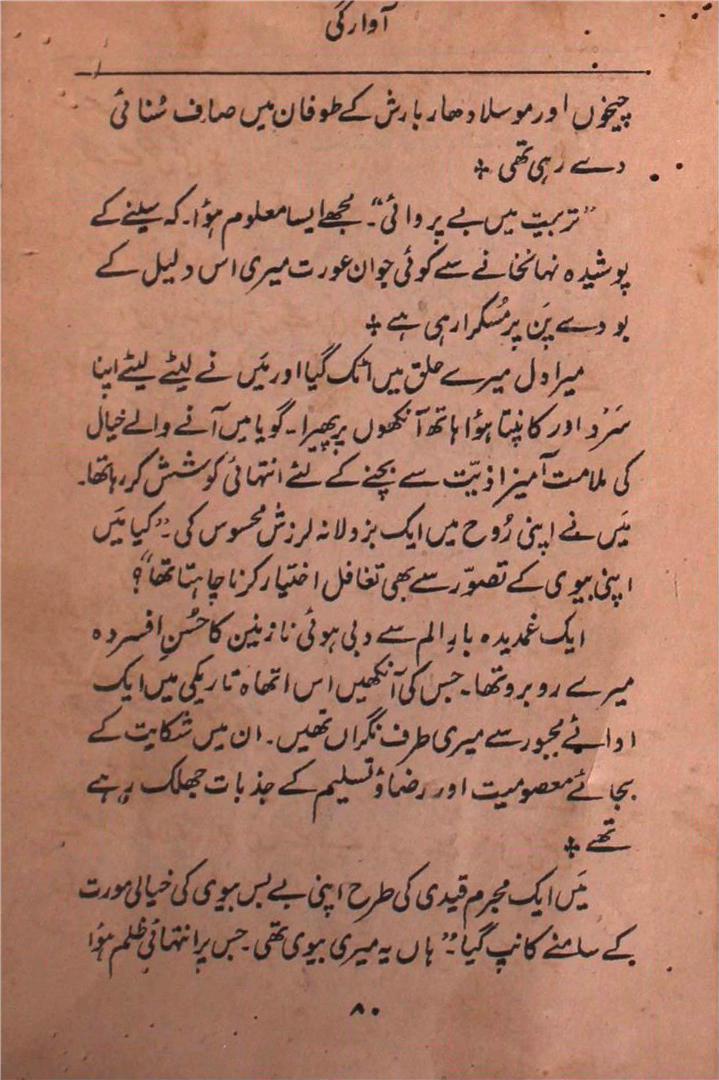 آوارگی
چیخوں اور موسلادھار بارش کے طوفان میں صاف سُنائی
دے رہی تھی ٭
"تربیت میں بے پروائی"۔ مجھے ایسا معلوم ہؤا۔ کہ سینے کے
پوشیدہ نہانخانے سے کوئی جوان عورت میری اس دلیل کے
بودے پَن پر مُسکرا رہی ہے ٭
میرا دل میرے حلق میں اٹک گیا اور مَیں نے لیٹے لیٹے اپنا
سَرد اور کانپتا ہؤا ہاتھ آنکھوں پر پھیرا۔ گویا میں آنے والے خیال
کی ملامت آمیز اذیّت سے بچنے کے لئے انتہائی کوشش کر رہا تھا۔
مَیں نے اپنی رُوح میں ایک بزدلانہ لرزش محسوس کی۔ "کیا مَیں
اپنی بیوی کے تصوّر سے بھی تغافل اختیار کرنا چاہتا تھا"؟
ایک غمدیدہ بارِ الم سے دبی ہوئی نازنین کا حُسنِ افسردہ
میرے روبرو تھا۔ جس کی آنکھیں اس اتھاہ تاریکی میں ایک
ادائے مجبور سے میری طرف نگراں تھیں۔ ان میں شکایت کے
بجائے معصومیت اور رضا و تسلیم کے جذبات جھلک رہے
تھے ٭
مَیں ایک مجرم قیدی کی طرح اپنی بے بس بیوی کی خیالی مورت
کے سامنے کانپ گیا۔ "ہاں یہ میری بیوی تھی۔ جس پر انتہائی ظلم ہؤا
۸۰